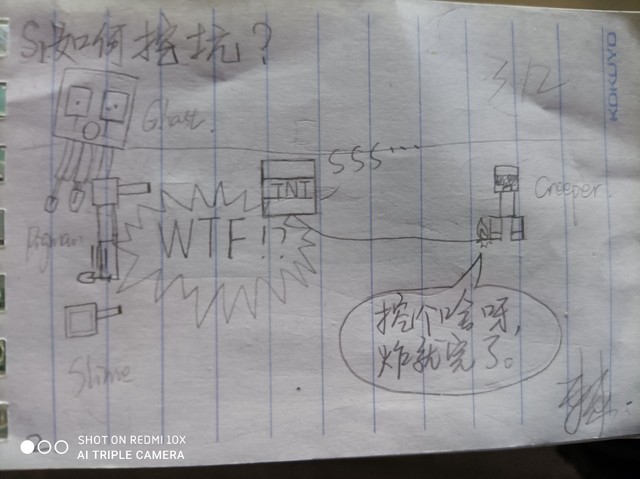 S1如何挖坑?
KOKUYO
3/12
Ghast.
SSS...
TNT
Creeper.
Pigman
WTF!?
挖个啥呀,
炸就完了。
Slime
SHOT ON REDMI 10X
AI TRIPLE CAMERA